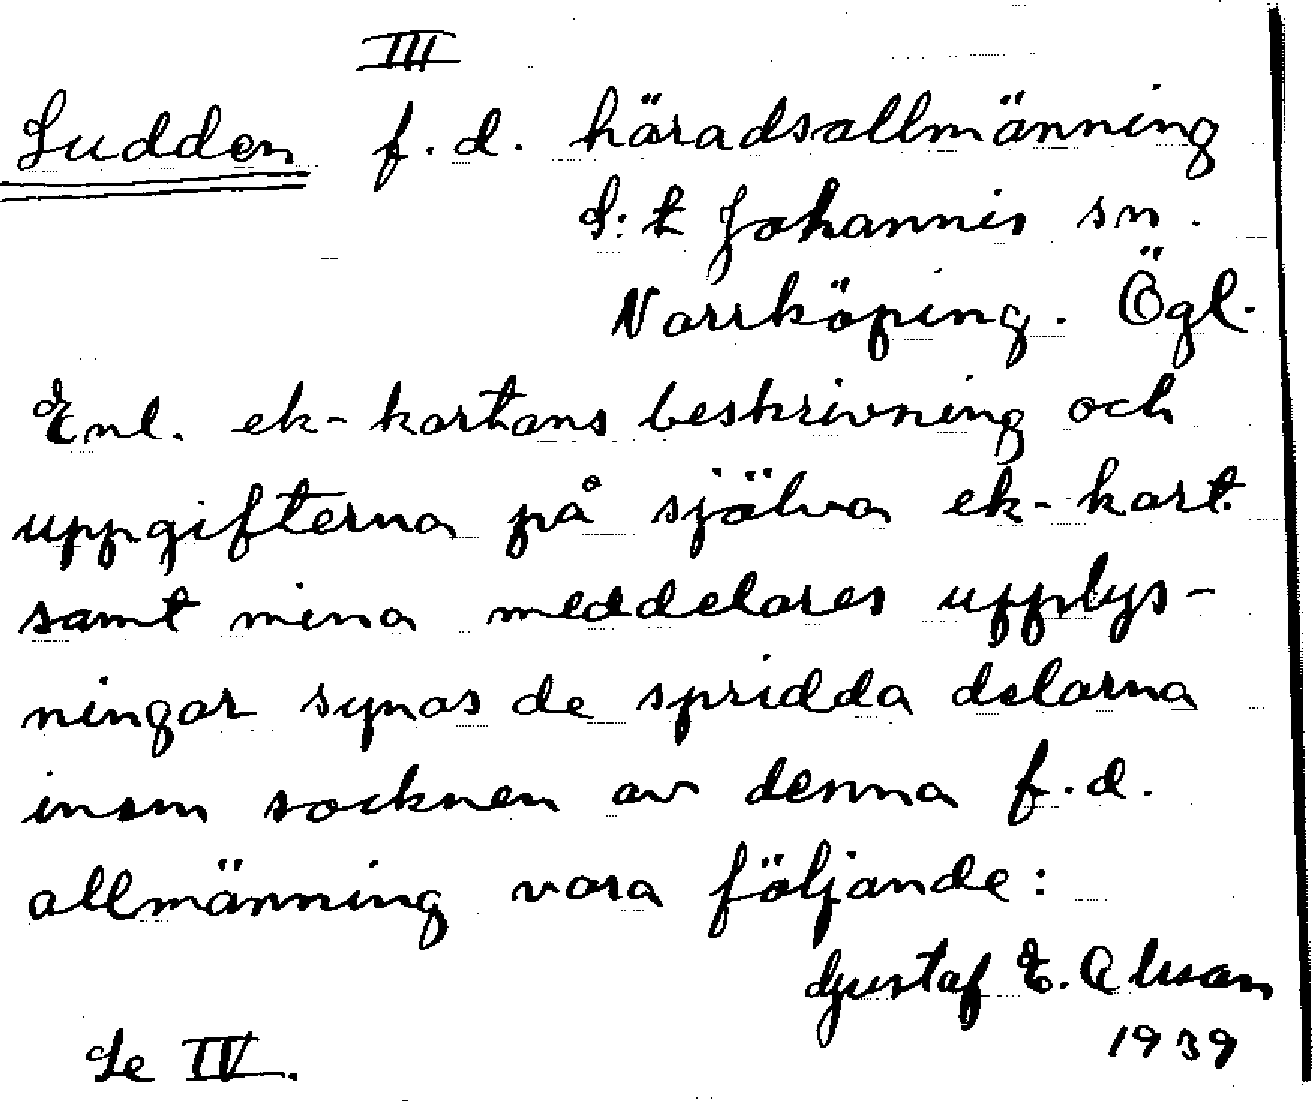 III
Sudden f.d. häradsallmänning
S:t Johannis sn.
Norrköping. Ögl.
Enl. ek-kartans beskrivning och
uppgifterna på själva ek-kart.
samt mina meddelares upplys-
ningar synas de spridda delarna
inom socknen av denna f.d.
allmänning vara följande:
Gustaf E.
1939
Se IV.